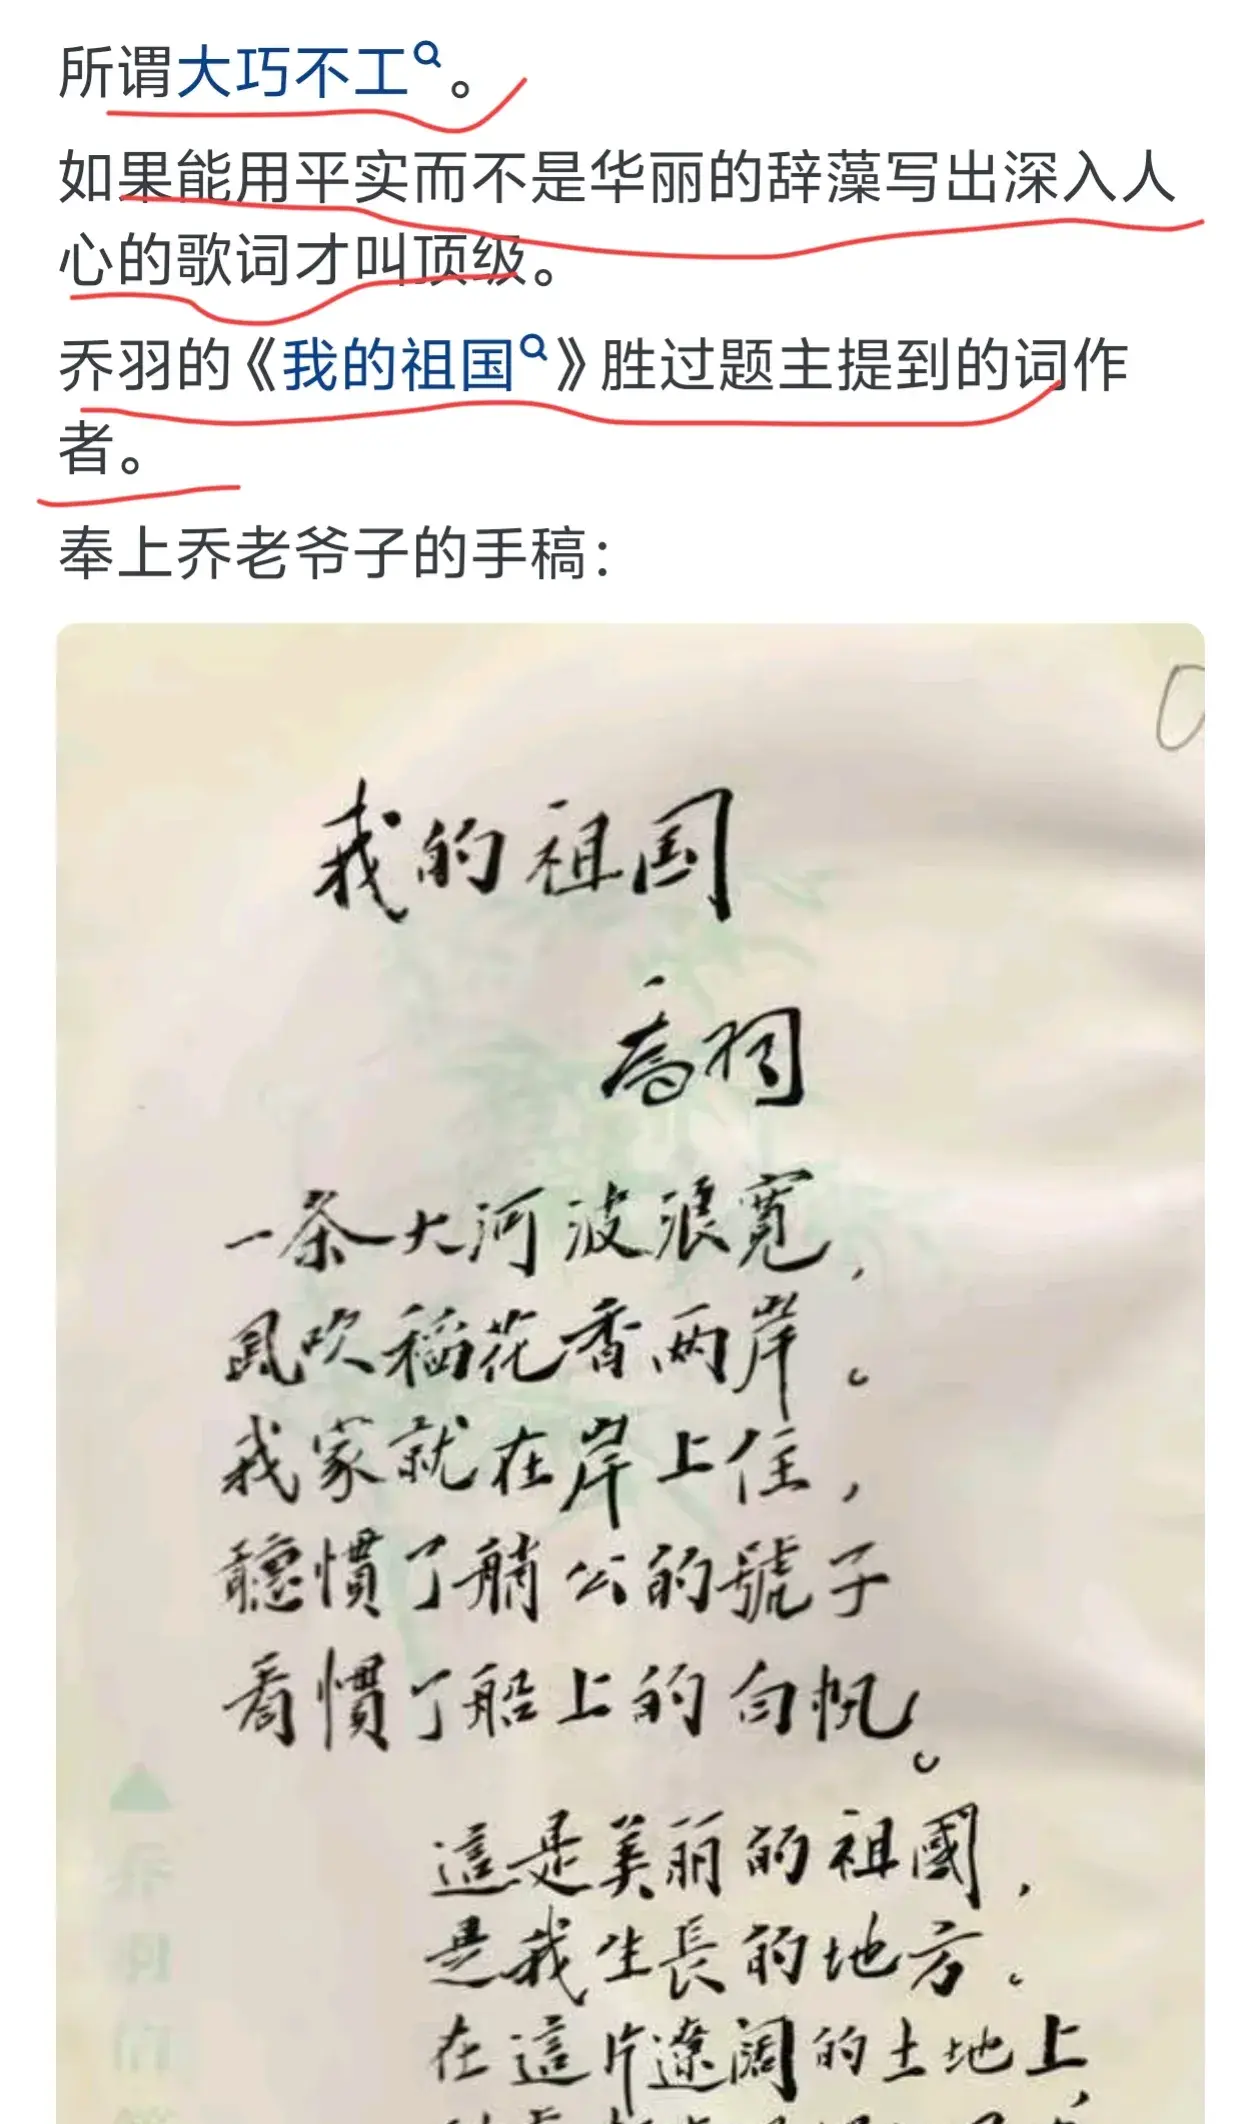 所谓大巧不工。
如果能用平实而不是华丽的辞藻写出深入人
心的歌词才叫顶级。
乔羽的《我的祖国》胜过题主提到的词作
者。
奉上乔老爷子的手稿：
我的祖国
喬羽
一条大河波浪寬，
風吹稻花香两岸。
我家就在岸上住，
聽慣了艄公的號子
看慣了船上的白帆。
這是美丽的祖國，
是我生長的地方。
在這片遼闊的土地上，